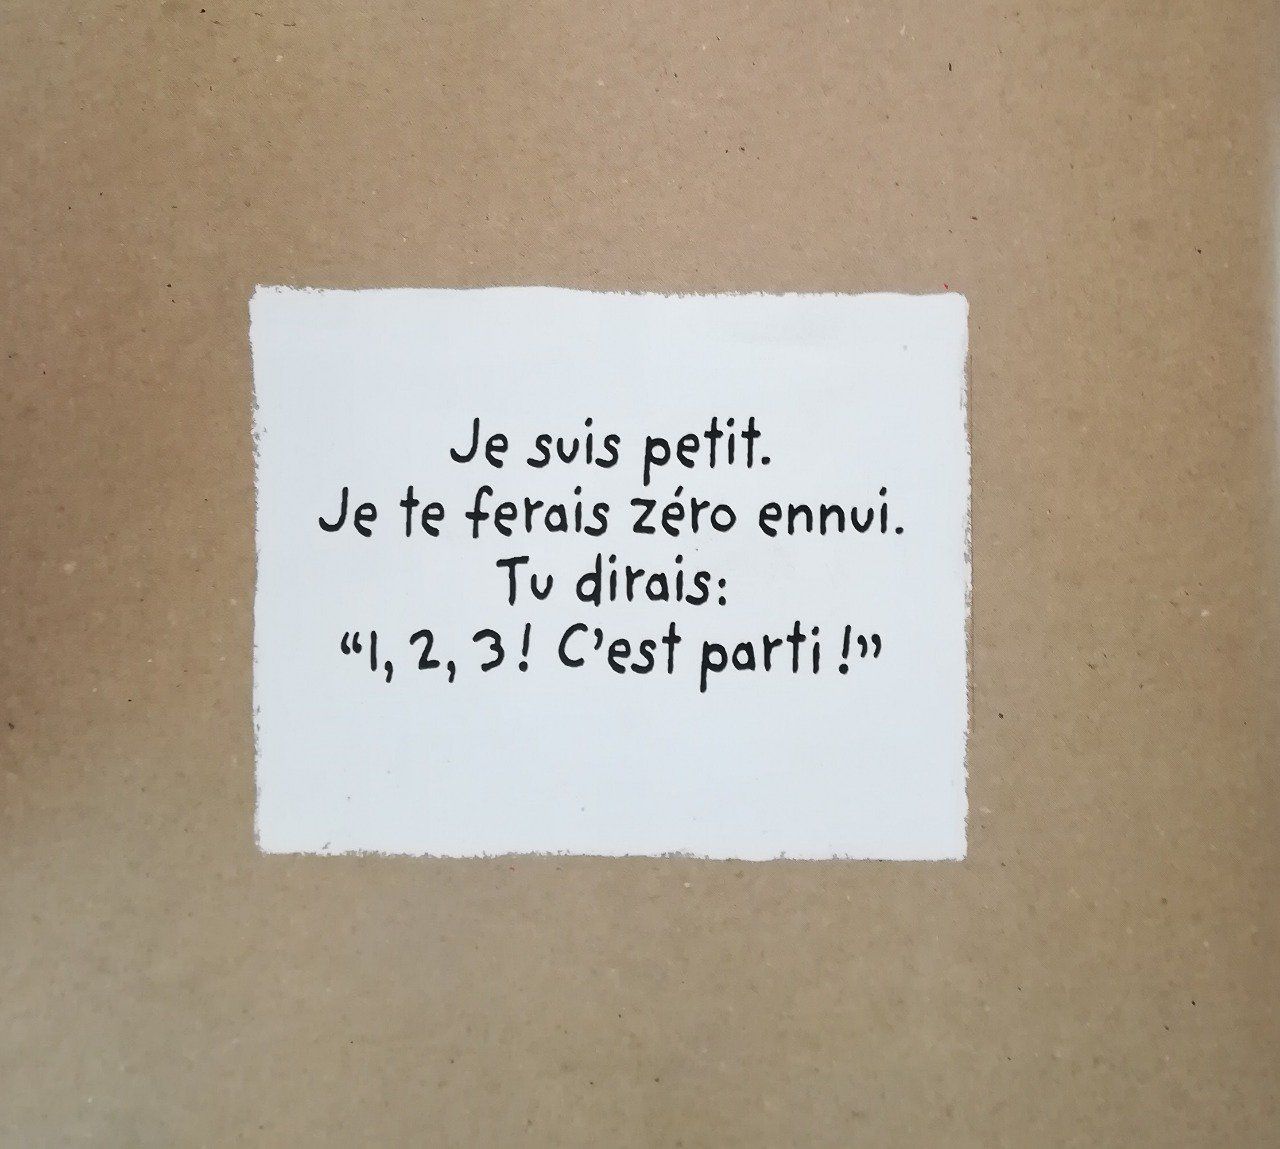 Je suis petit.
Je te ferais zéro ennui.
Tu dirais:
“1, 2, 3! C’est parti !”